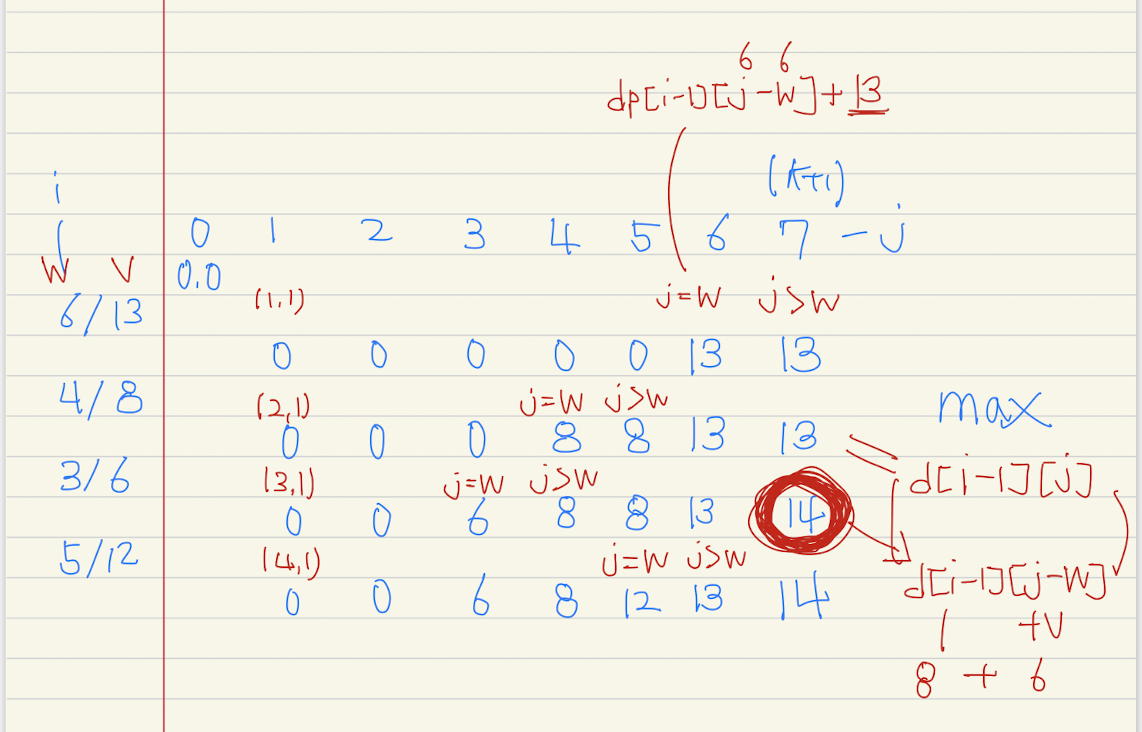 6 6
dp[i-1][j-W]+13
(K+1)
i
0 1 2 3 4 5 6 7 - j
W V 0,0
6/13 (1,1) j=W j>W
0 0 0 0 0 13 13
4/8 (2,1) j=W j>W max
0 0 0 8 8 13 13
3/6 (3,1) j=W j>W d[i-1][j]
0 0 6 8 8 13 14
5/12 (4,1) j=W j>W d[i-1][j-W]
0 0 6 8 12 13 14 +V
8 + 6